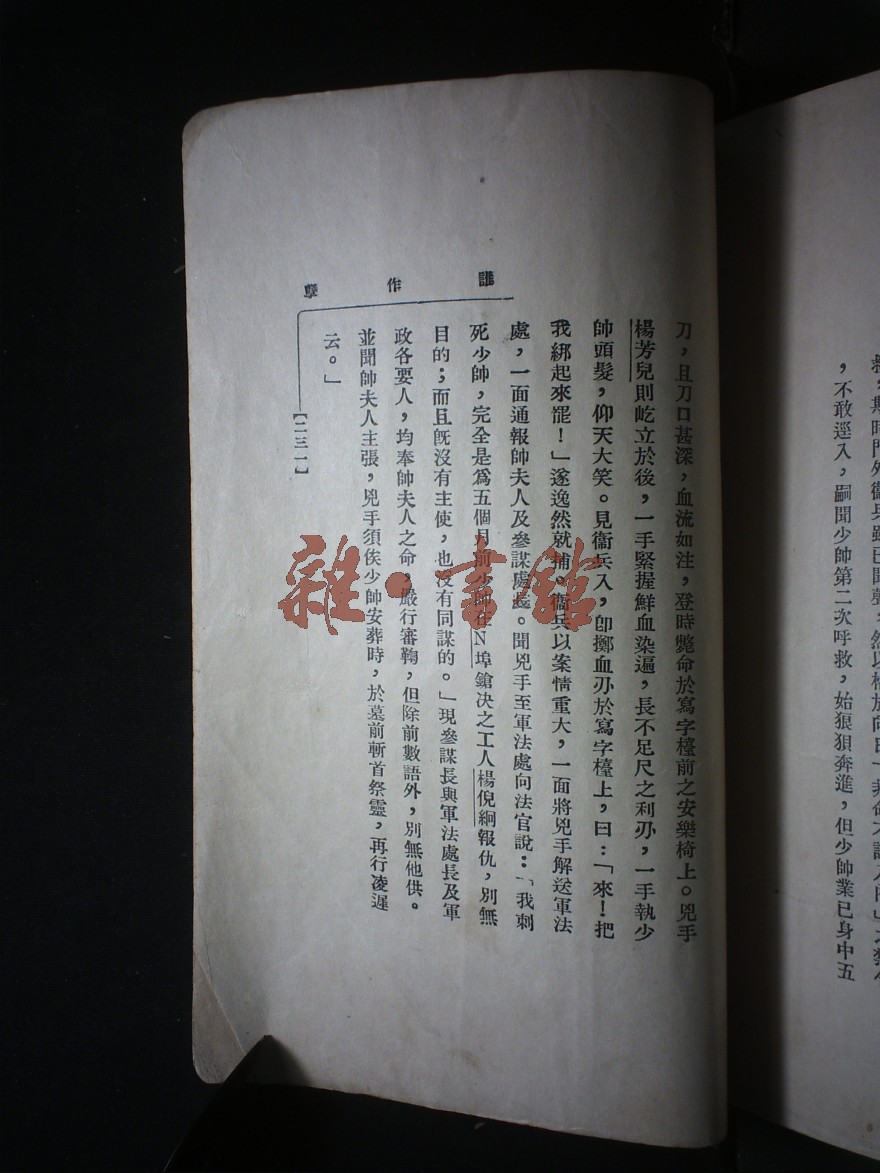 ，不敢逕入，嗣聞少帥第二次呼救，始狠狽奔進，但少帥業已身中五
誰作孽
刀，且刀口甚深，血流如注，登時斃命於寫字檯前之安樂椅上。兇手
楊芳兒則屹立於後，一手緊握鮮血染遍，長不足尺之利刃，一手執少
帥頭髮，仰天大笑。見衞兵入，卽擲血刃於寫字檯上，曰：「來！把
我綁起來罷！」遂逸然就捕。衞兵以案情重大，一面將兇手解送軍法
處，一面通報帥夫人及參謀處長。聞兇手至軍法處向法官說：「我刺
死少帥，完全是爲五個月前少帥在N埠鎗决之工人楊倪絅報仇，別無
目的；而且旣沒有主使，也沒有同謀的。」現參謀長與軍法處長及軍
政各要人，均奉帥夫人之命，嚴行審鞫，但除前數語外，別無他供。
並聞帥夫人主張，兇手須俟少帥安葬時，於墓前斬首祭靈，再行凌遲
云。」
【二三一】
雜·書館